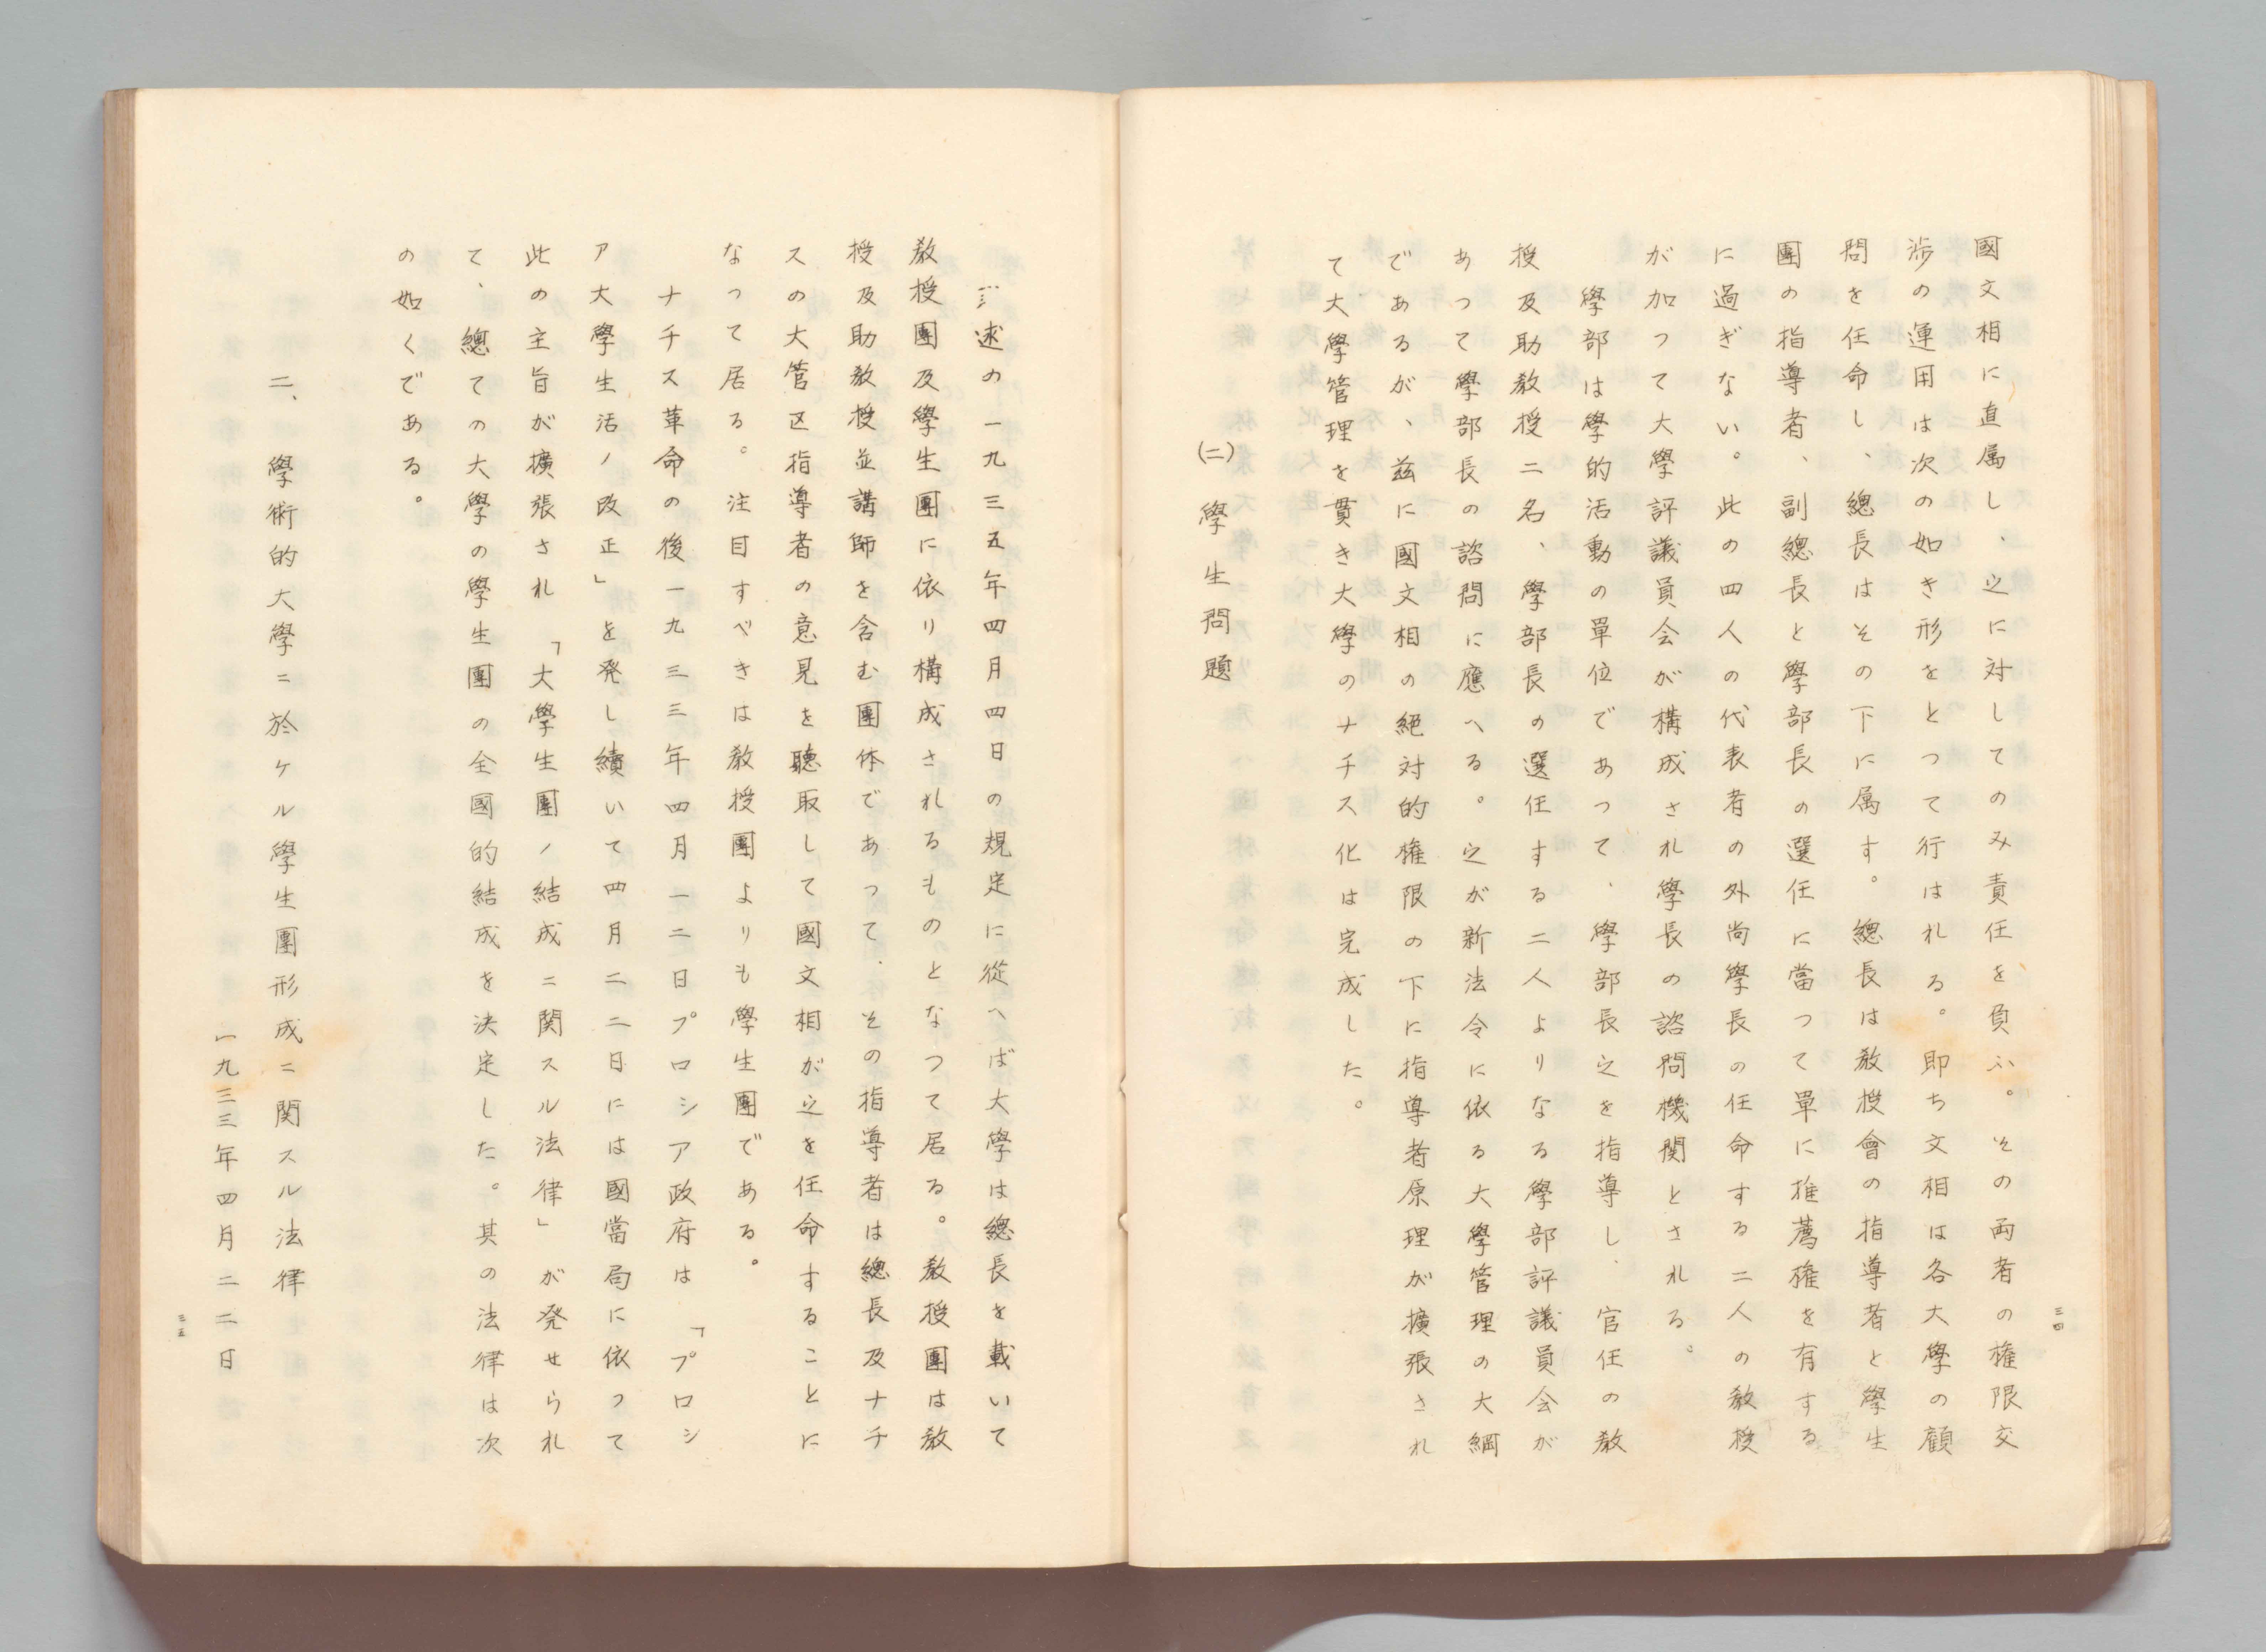 國文相に直属し、之に対してのみ責任を負ふ。その両者の権限交
渉の運用は次の如き形をとつて行はれる。即ち文相は各大學の顧
問を任命し、總長はその下に属す。總長は教授會の指導者と學生
團の指導者、副總長と學部長の選任に當つて單に推薦権を有する
に過ぎない。此の四人の代表者の外尚學長の任命する二人の教授
が加つて大學評議員会が構成され學長の諮問機関とされる。
學部は學的活動の單位であつて、學部長之を指導し、官任の教
授及助教授二名、學部長の選任する二人よりなる學部評議員会が
あつて學部長の諮問に應へる。之が新法令に依る大學管理の大綱
であるが、茲に國文相の絶対的権限の下に指導者原理が擴張され
て大學管理を貫き大學のナチス化は完成した。
(二) 學生問題
三四
述の一九三五年四月四日の規定に從へば大學は總長を載いて
教授團及學生團に依り構成されるものとなつて居る。教授團は教
授及助教授並講師を含む團体であつて、その指導者は總長及ナチ
スの大管区指導者の意見を聽取して國文相が之を任命することに
なつて居る。注目すべきは教授團よりも學生團である。
ナチス革命の後一九三三年四月一二日プロシア政府は「プロシ
ア大學生活ノ改正」を発し續いて四月二二日には國當局に依つて
此の主旨が擴張され「大學生團ノ結成ニ関スル法律」が発せられ
て、總ての大學の學生團の全國的結成を決定した。其の法律は次
の如くである。
二、學術的大學ニ於ケル學生團形成ニ関スル法律
一九三三年四月二二日
三五